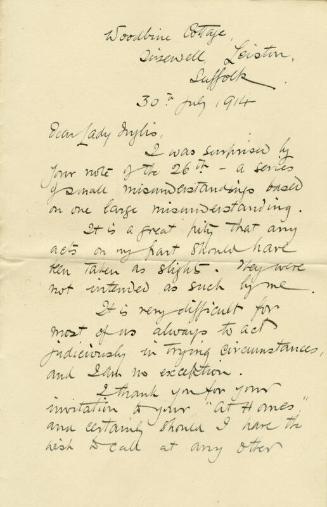 Woodbine Cottage,
Sizewell, Leiston,
Suffolk
30th July 1914
Dear Lady Inglis,
I was surprised by
your note of the 26th - a series
of small misunderstandings based
on one large misunderstanding.
It is a great pity that any
acts on my part should have
been taken as slight. They were
not intended as such by me.
It is very difficult for
most of us always to act
judiciously in trying circumstances,
and I am no exception.
I thank you for your
invitation to your "At Homes"
and certainly should I have the
wish to call at any other